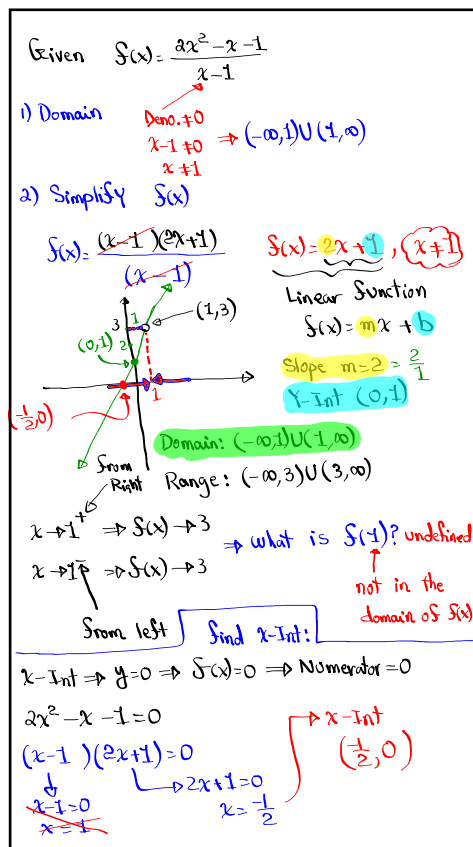 Given f(x) = (2x² - x - 1)/(x - 1)
1) Domain
Deno. ≠ 0
x - 1 ≠ 0 ⇒ (-∞, 1) ∪ (1, ∞)
x ≠ 1
2) Simplify f(x)
f(x) = (x - 1)(2x + 1)/(x - 1)
f(x) = 2x + 1, x ≠ 1
Linear function
f(x) = mx + b
Slope m = 2 = 2/1
Y-Int (0, 1)
3
1
(1, 3)
2
(0, 1)
1
(-1/2, 0)
Domain: (-∞, 1) ∪ (1, ∞)
Range: (-∞, 3) ∪ (3, ∞)
from Right
x → 1⁺ ⇒ f(x) → 3
x → 1⁻ ⇒ f(x) → 3
from left
⇒ what is f(1)? undefined
not in the
domain of f(x)
find x-Int:
x-Int ⇒ y = 0 ⇒ f(x) = 0 ⇒ Numerator = 0
2x² - x - 1 = 0
(x - 1)(2x + 1) = 0
x - 1 = 0
x = 1
2x + 1 = 0
x = -1/2
x-Int
(-1/2, 0)